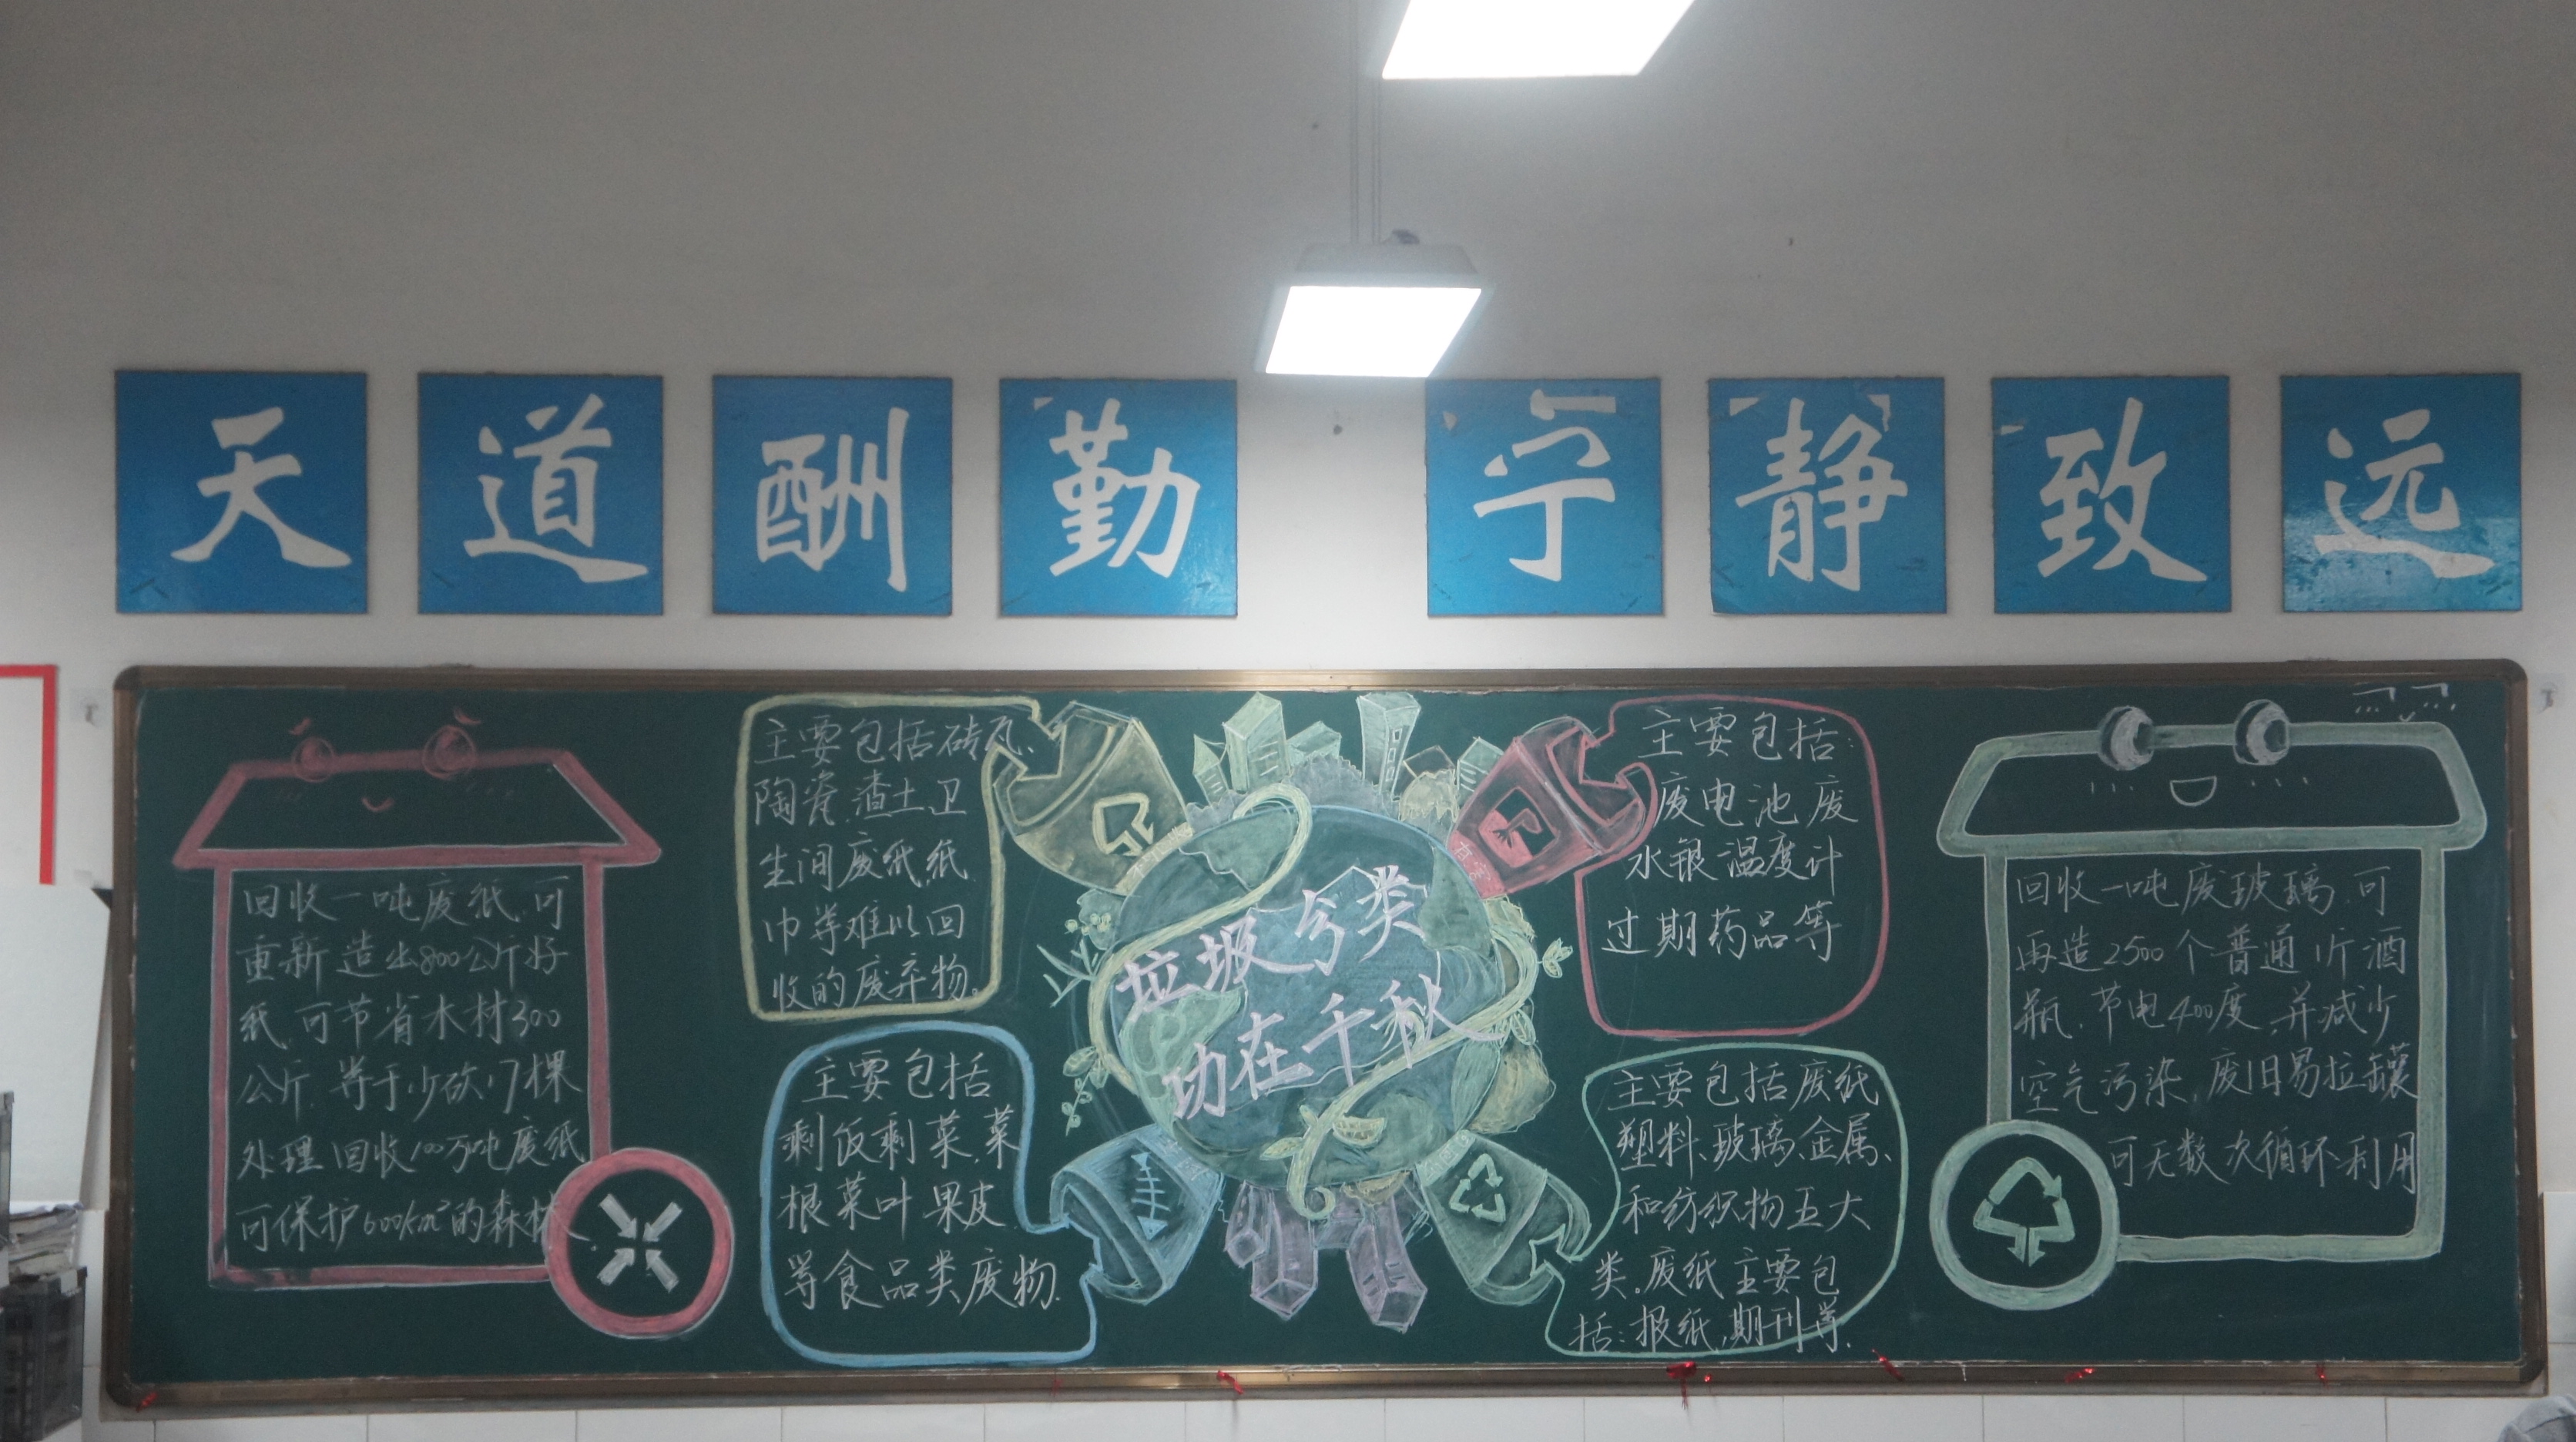 天道酬勤 宁静致远
回收一吨废纸,可
重新造出800公斤好
纸,可节省木材300
公斤,等于少砍17棵
处理回收100万吨废纸
可保护600km²的森林
主要包括砖瓦、
陶瓷、渣土、卫
生间废纸、纸
巾等难以回
收的废弃物。
主要包括
剩饭剩菜、菜
根菜叶果皮
等食品类废物.
垃圾分类
功在千秋
主要包括:
废电池废
水银温度计
过期药品等
主要包括废纸
塑料、玻璃、金属、
和纺织物五大
类.废纸主要包
括:报纸,期刊等.
回收一吨废玻璃,可
再造2500个普通1斤酒
瓶,节电400度,并减少
空气污染,废旧易拉罐
可无数次循环利用